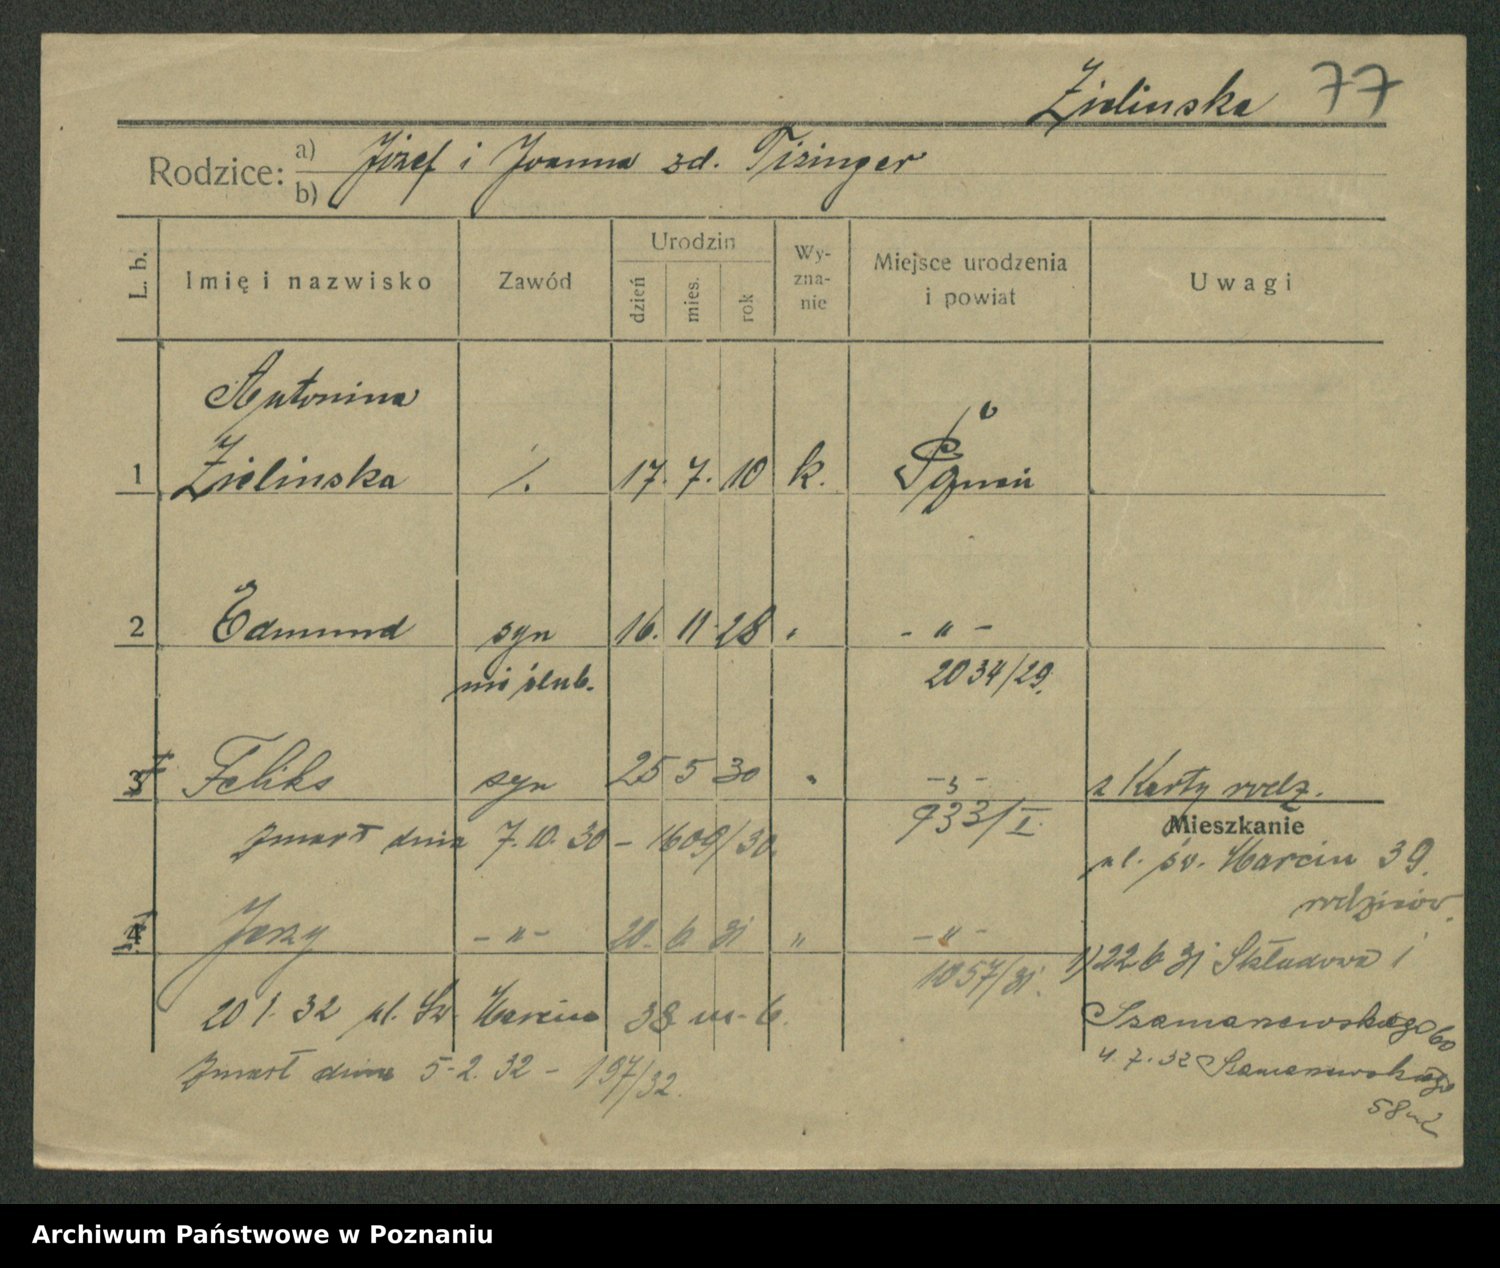 Zielinska 77
Rodzice: a) Józef i Joanna zd. Tizinger
b)
L. b. Imię i nazwisko Zawód Urodzin dzień mies. rok Wy-zna-nie Miejsce urodzenia i powiat Uwagi
Antonina
1 Zielinska /. 17. 7. 10 k. Poznań
2 Edmund syn 16. 11. 28 " - " -
nieślub. 2034/29.
3 Feliks syn 25 5 30 " - " - z Karty rodz.
933/I.
Mieszkanie
zmarł dnia 7.10.30 - 1609/30. ul. św. Marcin 39.
rodziców.
4 Jerzy - " - 20. 6 31 " - " - 1) 22 6 31 Składowa 1
1057/31.
20 1. 32 ul. Św. Marcin 38 m. 6. Szamarzewskiego 60
Zmarł dnia 5.2.32 - 197/32. 4.7.32 Szamarzewskiego
58